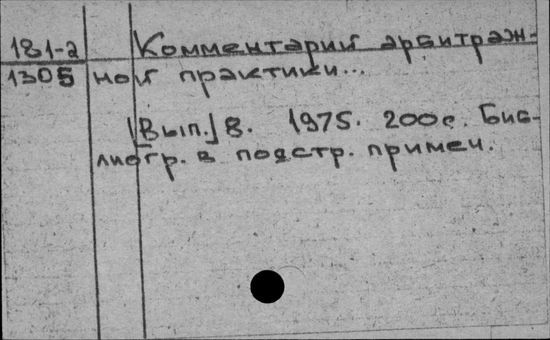 181-2 Комментарий арбитраж-
1305 ной практики...
[Вып.] 8. 1975. 200с. Биб-
лиогр. в подстр. примеч.